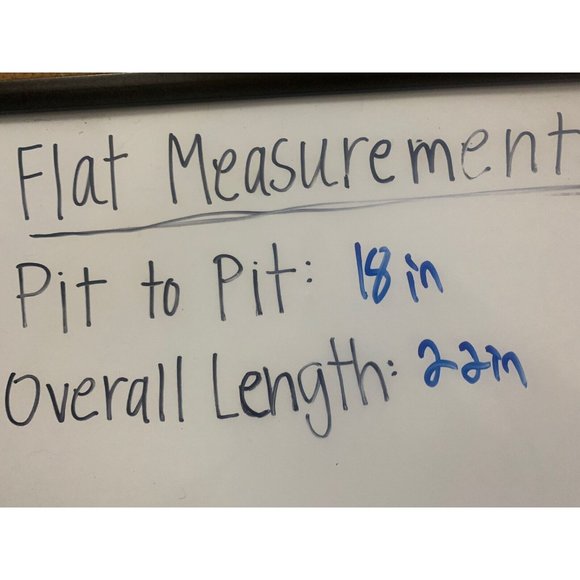 Flat Measurement
Pit to Pit: 18 in
Overall Length: 22in